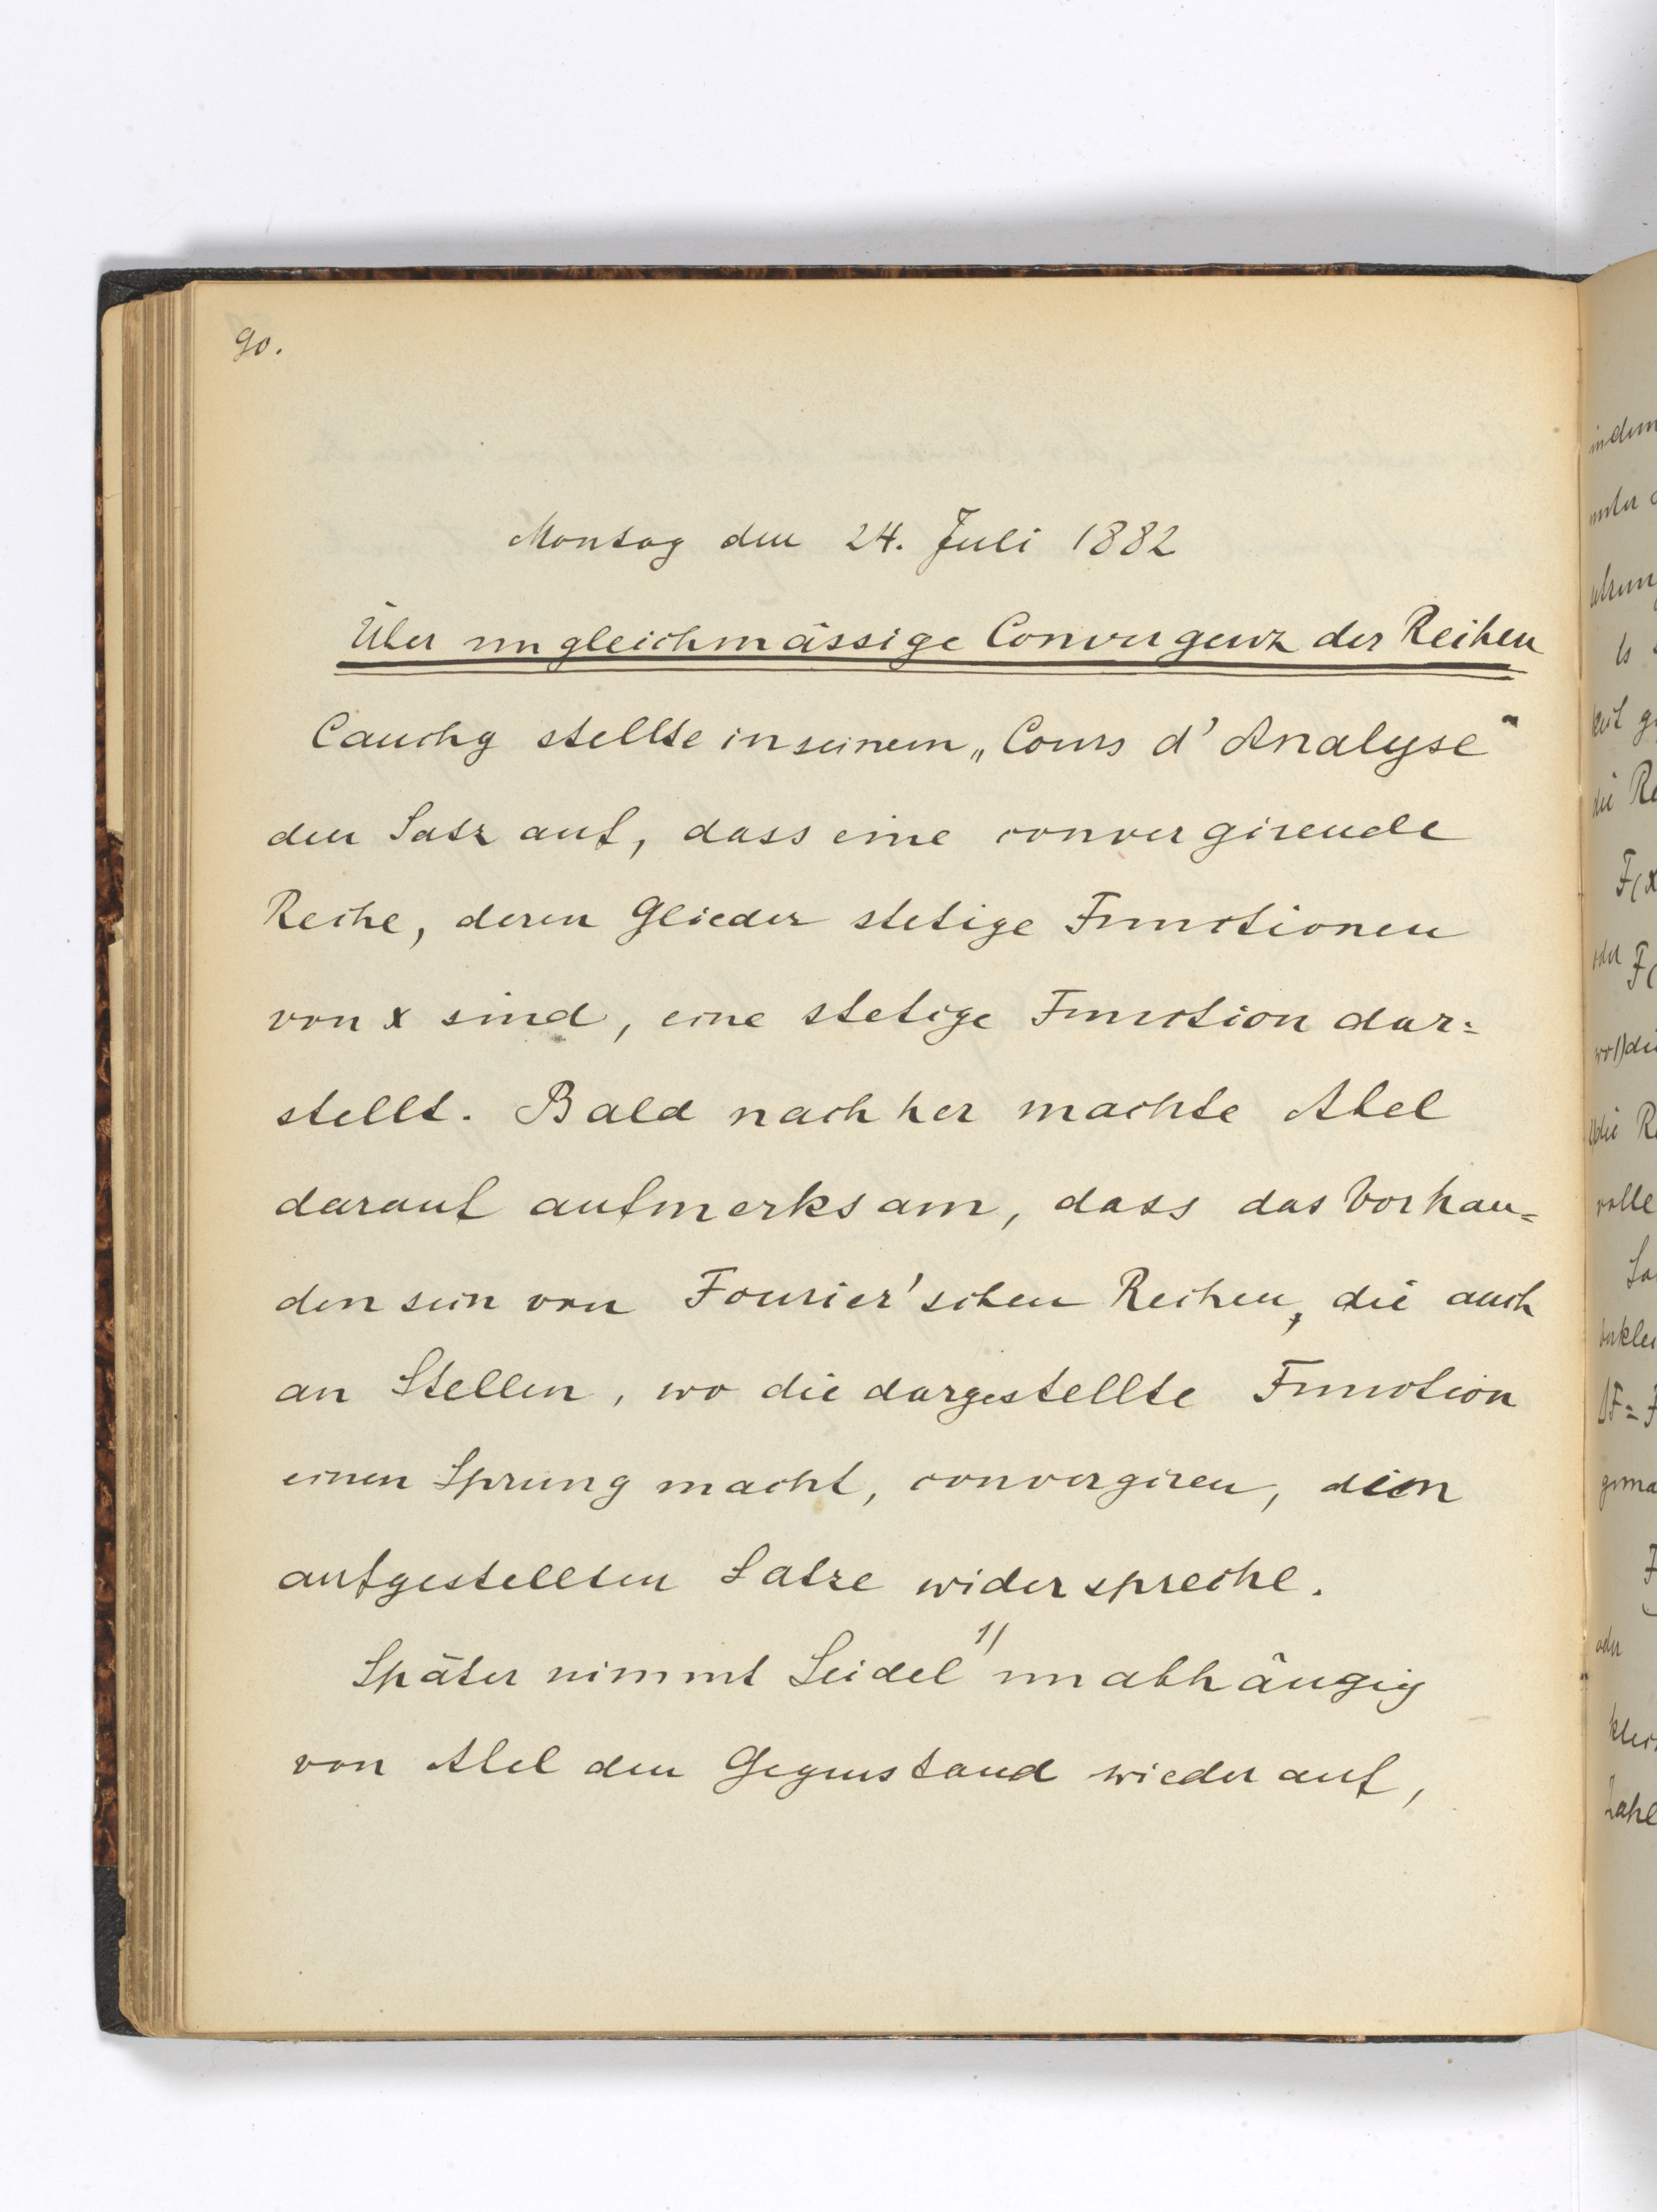 90.
Montag den 24. Juli 1882
Über ungleichmässige Convergenz der Reihen
Cauchy stellte in seinem „Cours d'Analyse“
den Satz auf, dass eine convergirende
Reihe, deren Glieder stetige Functionen
von x sind, eine stetige Function dar=
stellt. Bald nachher machte Abel
darauf aufmerksam, dass das Vorhan=
densein von Fourier'schen Reihen, die auch
an Stellen, wo die dargestellte Function
einen Sprung macht, convergiren, dem
aufgestellten Satze widerspreche.
Später nimmt Seidel 1) unabhängig
von Abel den Gegenstand wieder auf,